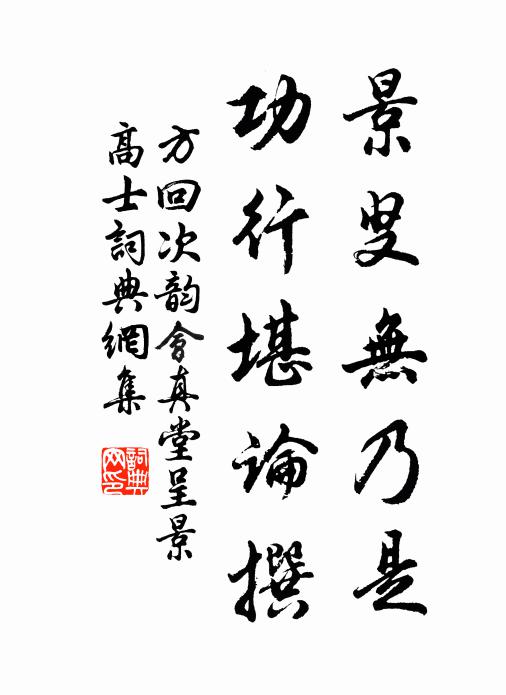 景叟無乃是
功行堪論撰
方回次韵會真堂呈景
高士詞典網集
詞典网印